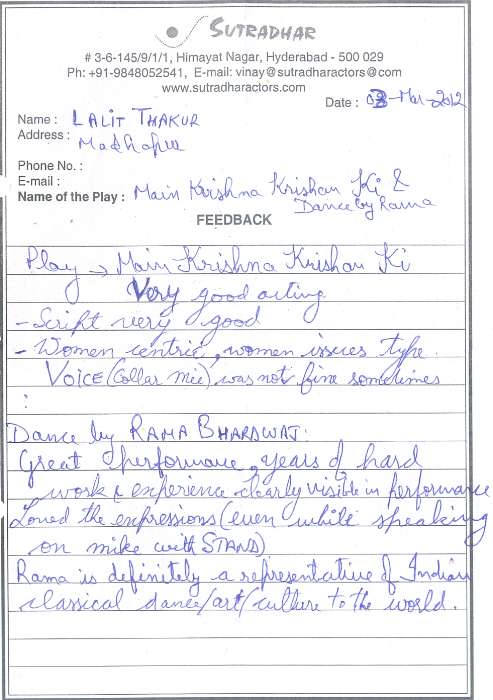 SUTRADHAR
# 3-6-145/9/1/1, Himayat Nagar, Hyderabad - 500 029
Ph: +91-9848052541, E-mail: vinay@sutradharactors@com
www.sutradharactors.com
Date : 03-Mar-2012
Name : LALIT THAKUR
Address : Madhapur
Phone No. :
E-mail :
Name of the Play : Main Krishna Krishan Ki &
Dance by Rama
FEEDBACK
Play → Main Krishna Krishan Ki
Very good acting
- Script very good
- Women centric, women issues type.
VOICE (Collar Mic) was not fine sometimes
:
Dance by RAMA BHARDWAJ:
Great performance, years of hard
work & experience clearly visible in performance
Loved the expressions (even while speaking
on mike with STAND)
Rama is definitely a representative of Indian
classical dance/art/culture to the world.